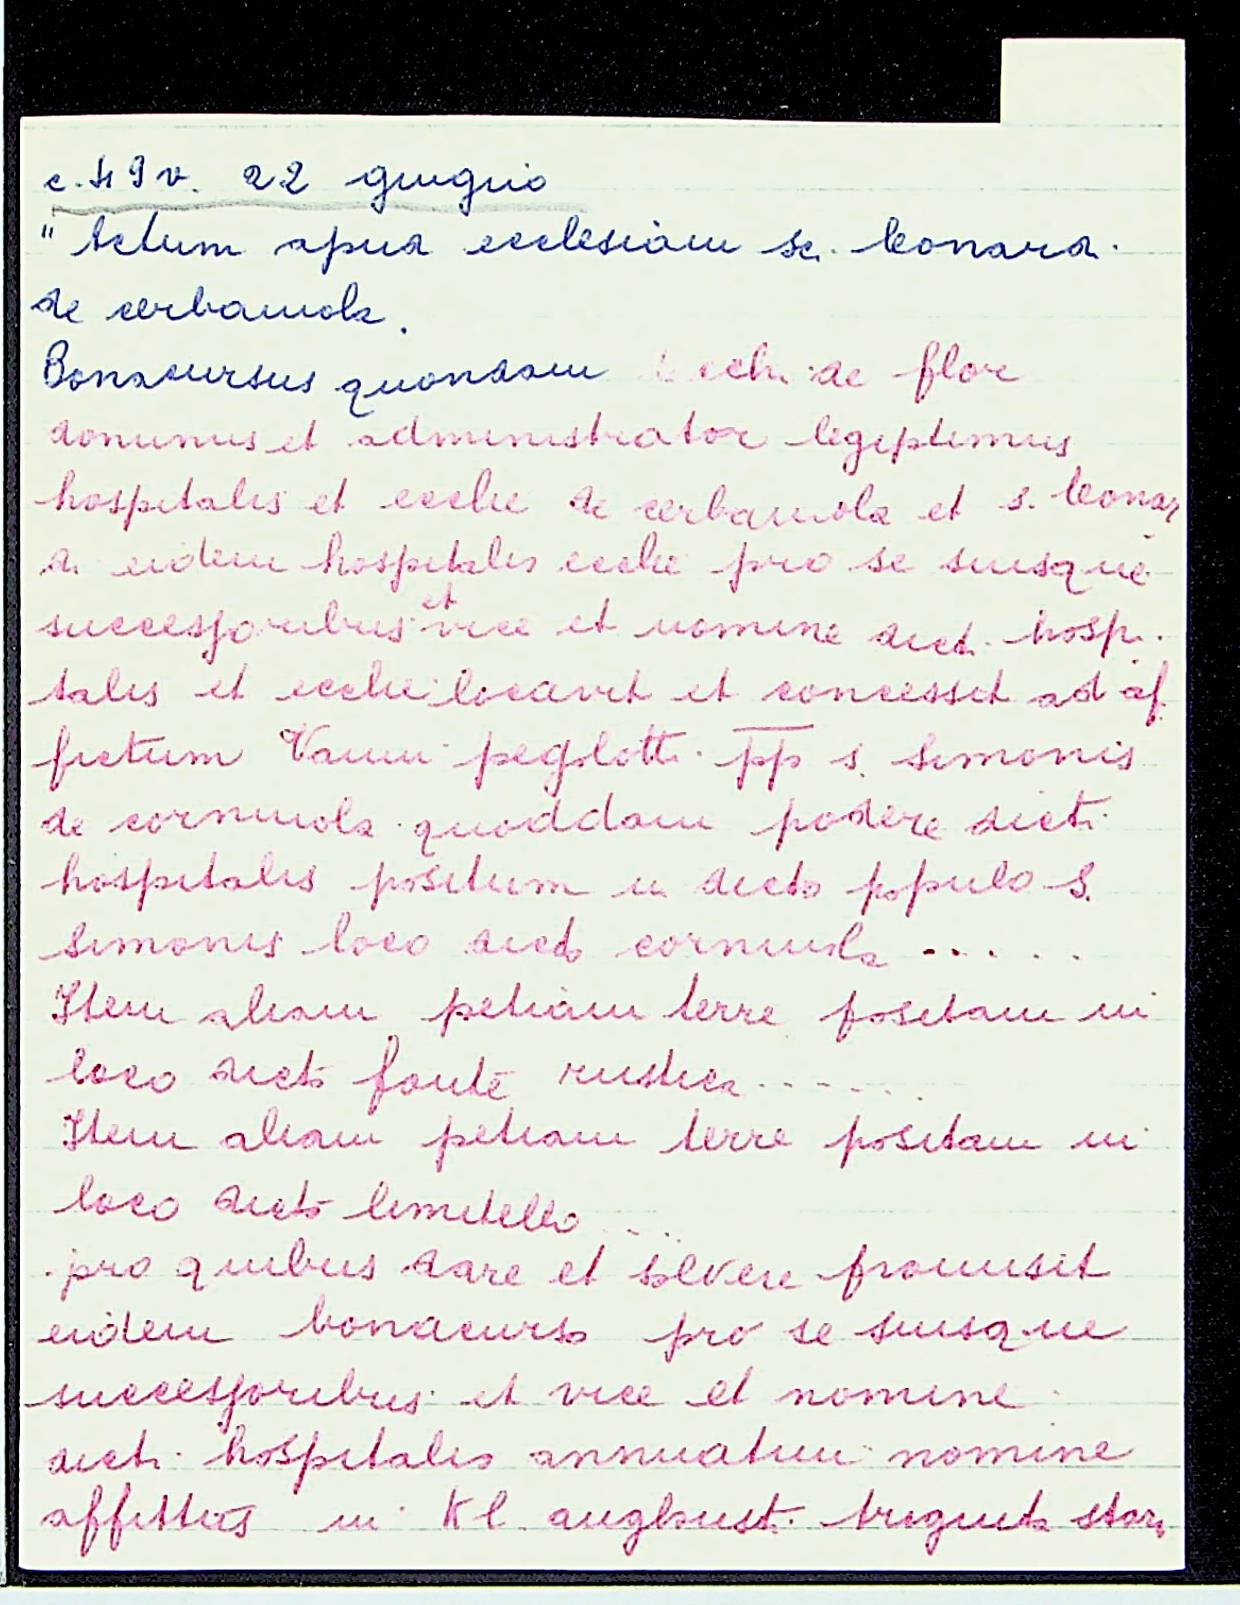 c. 49 v. 22 giugno
"Actum apud ecclesiam sci. leonardi
de cerbaiuola.
Bonacursus quondam ecchi de flor
dominus et administrator legiptimus
hospitalis et ecclie de cerbaiuola et s. leonar
di eidem hospitalis ecclie pro se suisque
successoribus et vice et nomine dicti hospi
talis et ecclie locavit et concessit ad af
fictum Vanni pegolotti pp s. Simonis
de corniuola quoddam podere dicti
hospitalis positum in dicto populo S.
Simonis loco dicto corniuola .....
Item aliam petiam terre positam in
loco dicto fonte rustica ......
Item aliam petiam terre positam in
loco dicto limitello ...
pro quibus dare et solvere promisit
eidem bonacurso pro se suisque
successoribus et vice et nomine
dicti hospitalis annuatim nomine
affittus in Kl. augusti triginta stari